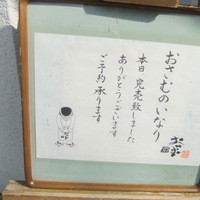 おさむのいなり
本日 完売致しました
ありがとうございます
ご予約 承ります